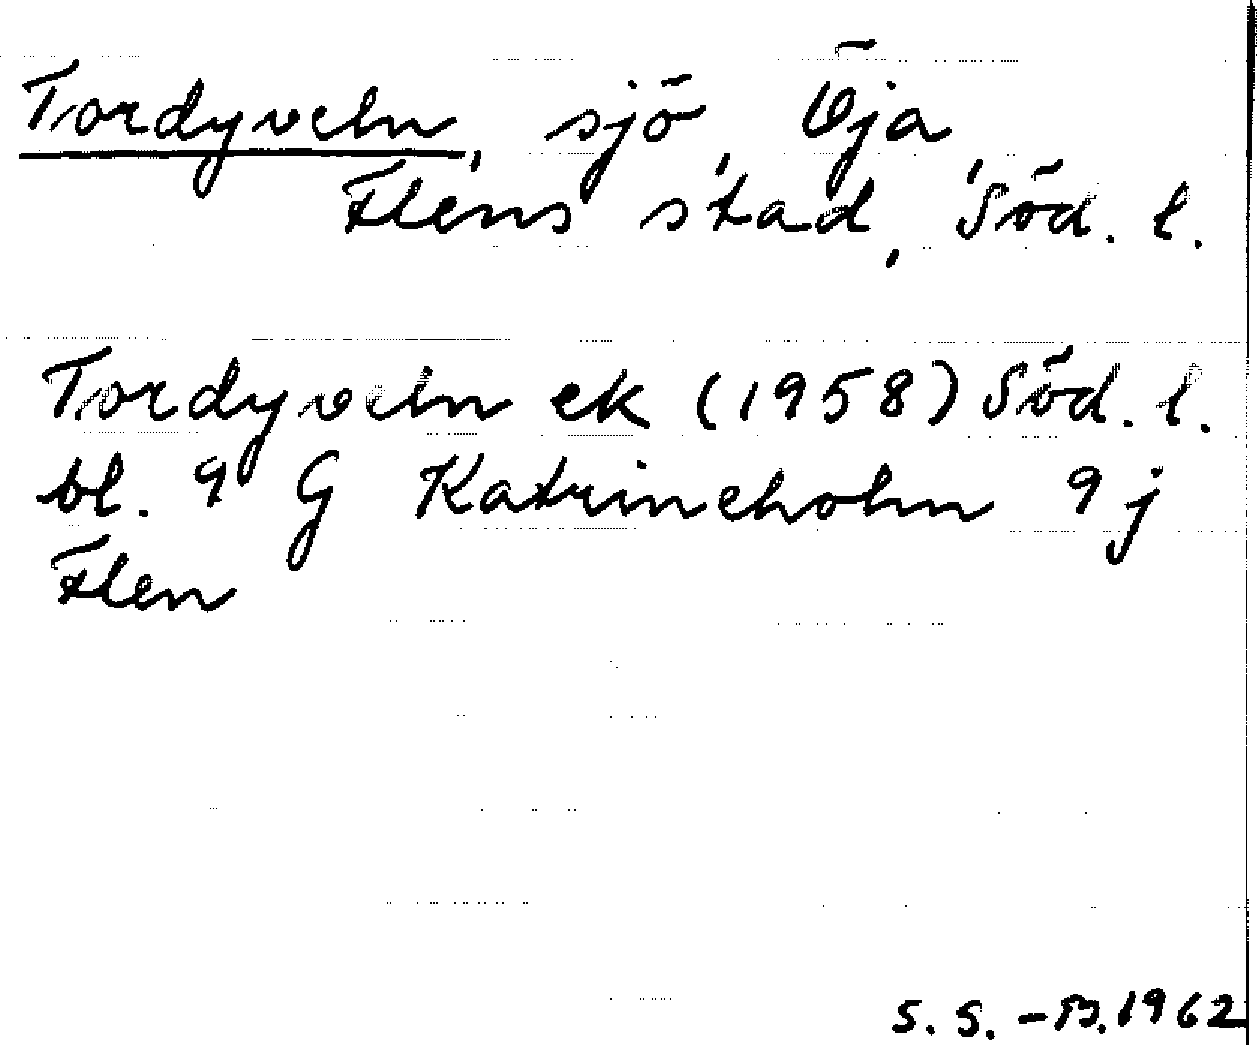 Tordyveln, sjö, Öja,
Flens stad, Söd. l.
Tordyveln ek (1958) Söd. l.
bl. 9 G Katrineholm 9 j
Flen
S. S. - B. 1962